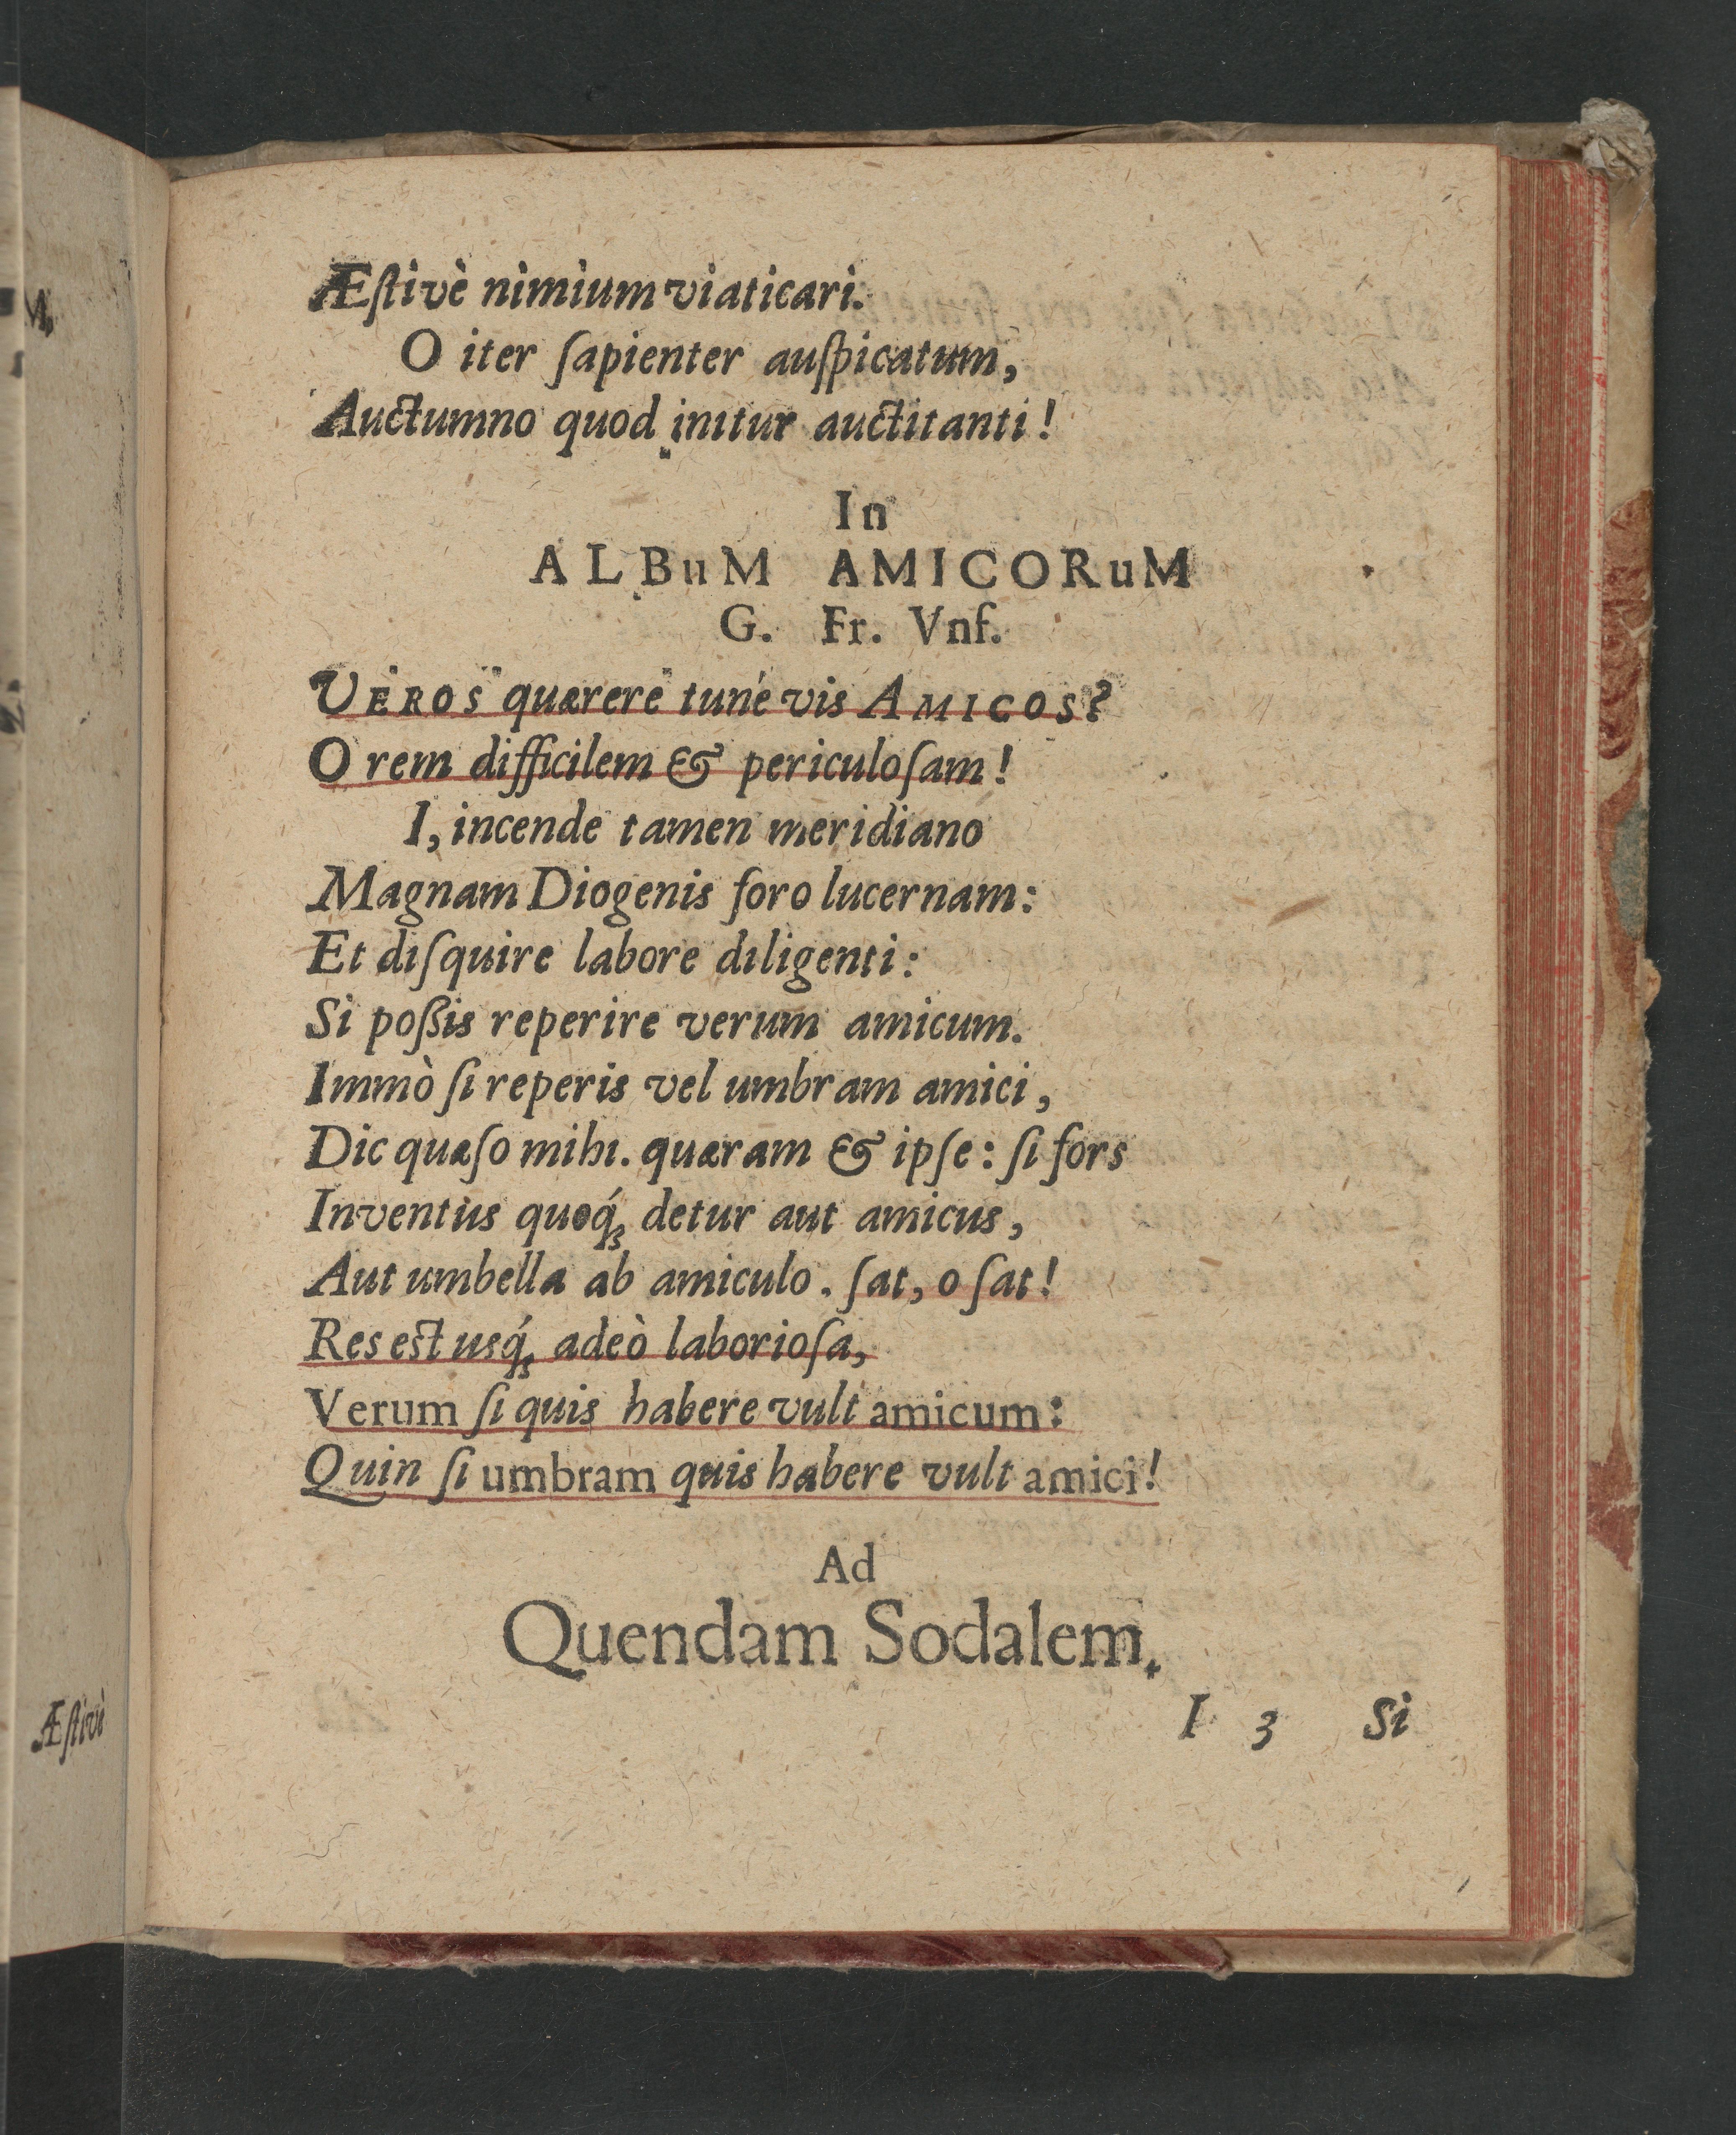 Æſtivè nimium viaticari.
O iter ſapienter auſpicatum,
Auctumno quod initur auctitanti!
In
ALBuM AMICORuM
G. Fr. Vnf.
VEROS quærere tune vis AMICOS?
O rem difficilem & periculoſam!
I, incende tamen meridiano
Magnam Diogenis foro lucernam:
Et diſquire labore diligenti:
Si poßis reperire verum amicum.
Immò ſi reperis vel umbram amici,
Dic quæſo mihi. quæram & ipſe: ſi fors
Inventus quoq́; detur aut amicus,
Aut umbella ab amiculo. ſat, o ſat!
Res est usq́; adeò laborioſa,
Verum ſi quis habere vult amicum:
Quin ſi umbram quis habere vult amici!
Ad
Quendam Sodalem.
I 3 Si
M,
Æſtivè